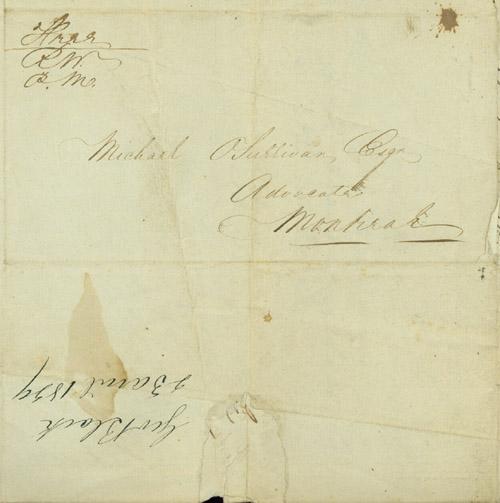 Free
P. M.
Michael O'Sullivan, Esqr
Advocate
Montreal
Black
23 avril 1829